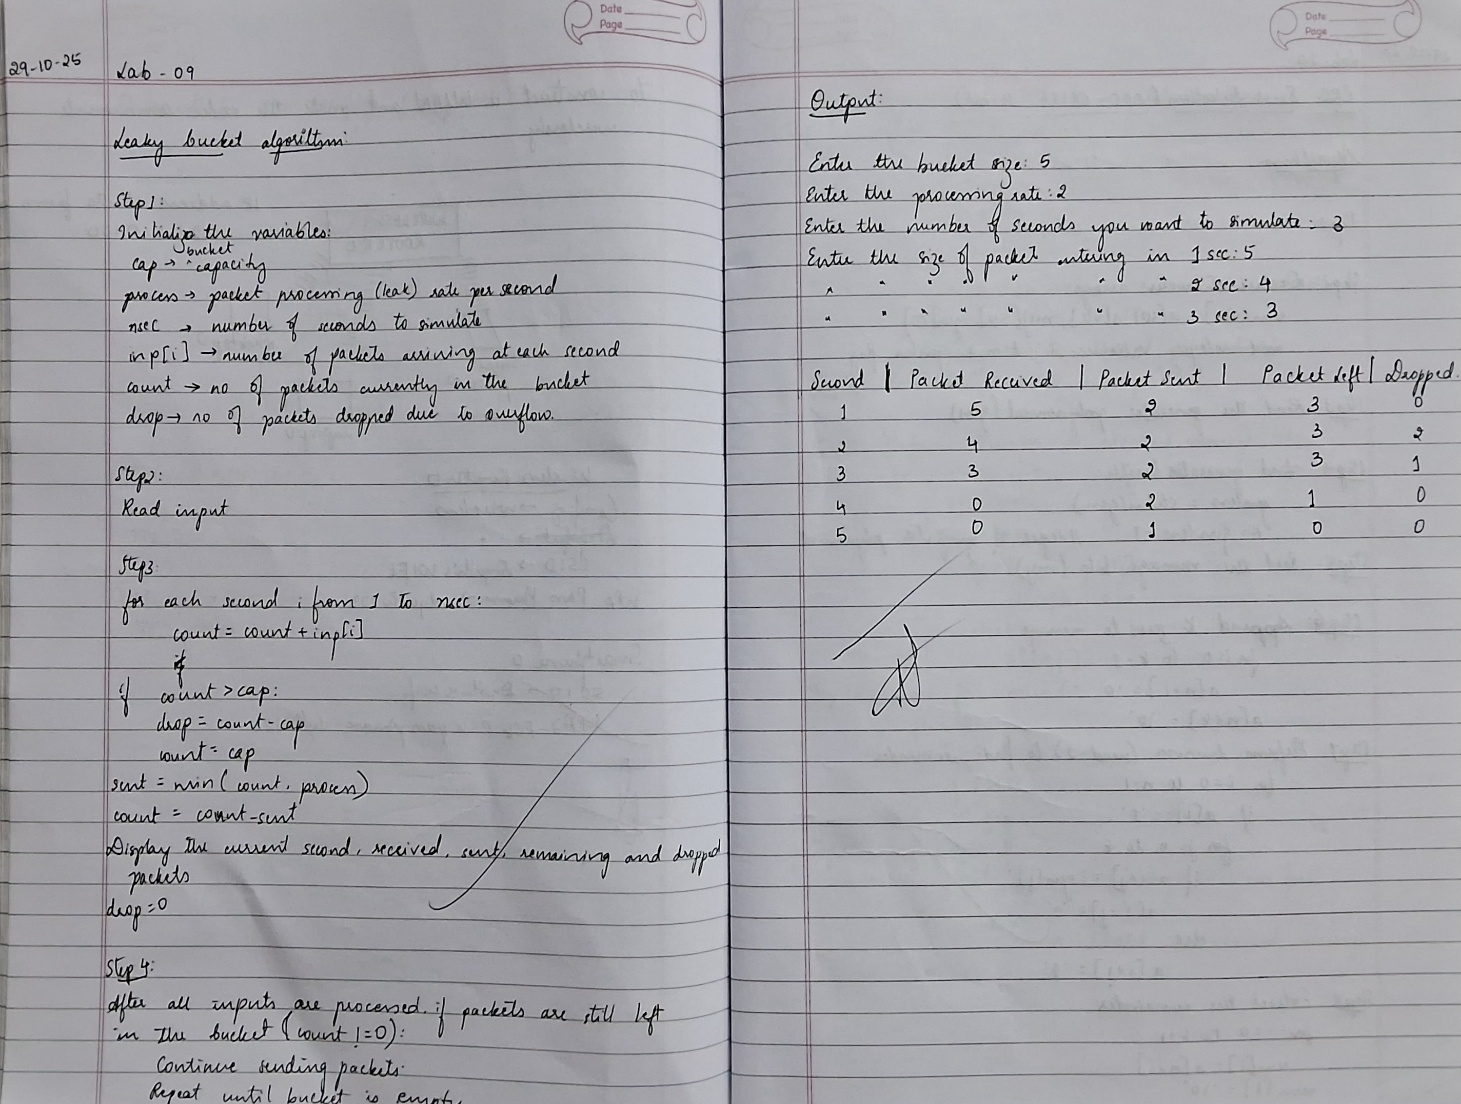 Date
Page
29-10-25
Lab - 09
Leaky bucket algorithm:
Step1:
Initialize the variables:
bucket
cap → ^capacity
process → packet processing (leak) rate per second
nsec → number of seconds to simulate
inp[i] → number of packets arriving at each second
count → no of packets currently in the bucket
drop → no of packets dropped due to overflow.
Step2:
Read input
Step3:
for each second i from 1 to nsec:
count = count + inp[i]
if
if count > cap:
drop = count - cap
count = cap
sent = min(count, process)
count = count - sent
Display the current second, received, sent, remaining and dropped
packets
drop = 0
Step 4:
After all inputs are processed, if packets are still left
in the bucket (count != 0):
Continue sending packets.
Repeat until bucket is empty
Date
Page
Output:
Enter the bucket size: 5
Enter the processing rate: 2
Enter the number of seconds you want to simulate: 3
Enter the size of packet entering in 1 sec: 5
" " " " " " " 2 sec: 4
" " " " " " " 3 sec: 3
Second | Packet Received | Packet Sent | Packet Left | Dropped
1 5 2 3 0
2 4 2 3 2
3 3 2 3 1
4 0 2 1 0
5 0 1 0 0